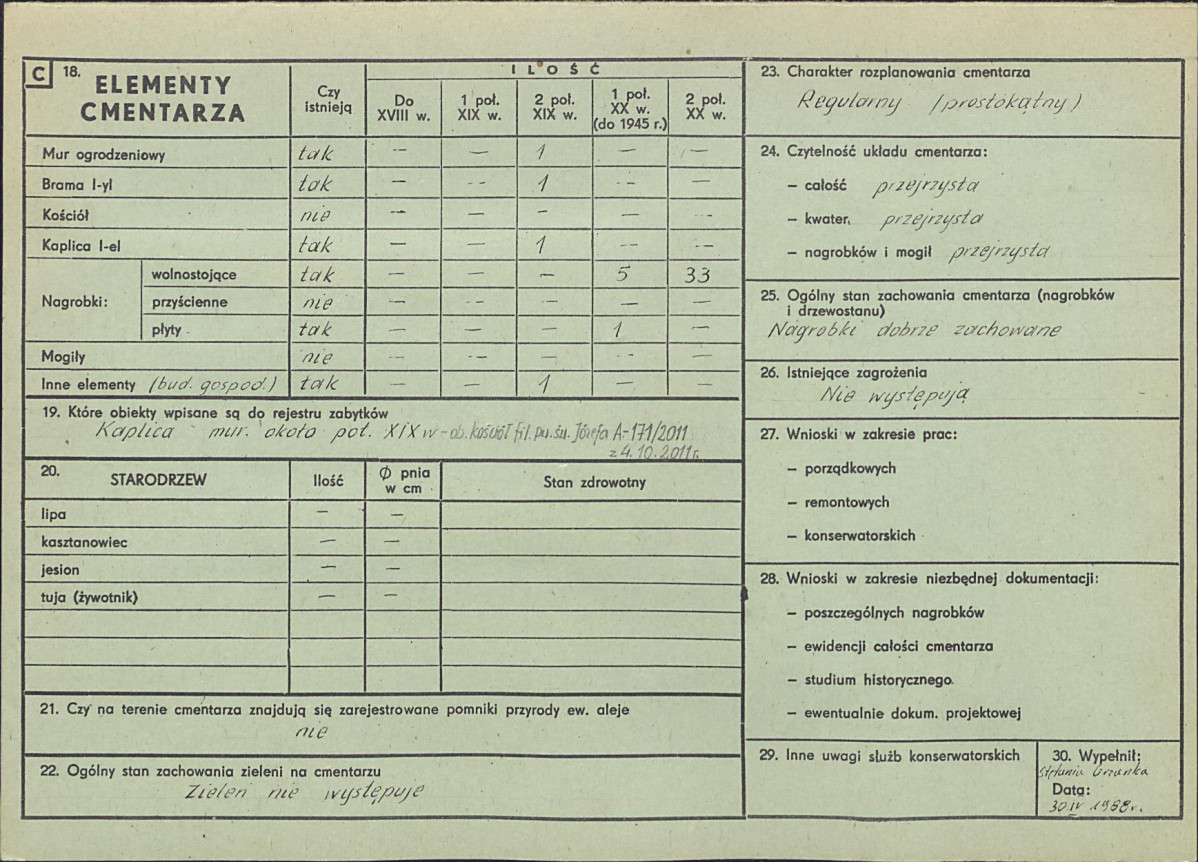 C 18. ELEMENTY CMENTARZA
Czy istnieją
ILOŚĆ
Do XVIII w.
1 poł. XIX w.
2 poł. XIX w.
1 poł. XX w. (do 1945 r.)
2 poł. XX w.
Mur ogrodzeniowy tak — — 1 — —
Brama I-yl tak — -- 1 -- —
Kościół nie — — — — --
Kaplica I-el tak — — 1 -- --
Nagrobki:
wolnostojące tak — — — 5 33
przyścienne nie — -- -- — —
płyty tak — — — 1 —
Mogiły nie — -- — -- —
Inne elementy (bud. gospod.) tak — — 1 — —
19. Które obiekty wpisane są do rejestru zabytków
Kaplica mur. około poł. XIX w - ob. kościół fil. pw. św. Józefa A-171/2011
z 4.10.2011 r.
20. STARODRZEW
Ilość
Ø pnia w cm
Stan zdrowotny
lipa — —
kasztanowiec — —
jesion — —
tuja (żywotnik) — —
21. Czy na terenie cmentarza znajdują się zarejestrowane pomniki przyrody ew. aleje
nie
22. Ogólny stan zachowania zieleni na cmentarzu
Zieleń nie występuje
23. Charakter rozplanowania cmentarza
Regularny (prostokątny)
24. Czytelność układu cmentarza:
– całość przejrzysta
– kwater przejrzysta
– nagrobków i mogił przejrzysta
25. Ogólny stan zachowania cmentarza (nagrobków
i drzewostanu)
Nagrobki dobrze zachowane
26. Istniejące zagrożenia
Nie występują
27. Wnioski w zakresie prac:
– porządkowych
– remontowych
– konserwatorskich
28. Wnioski w zakresie niezbędnej dokumentacji:
– poszczególnych nagrobków
– ewidencji całości cmentarza
– studium historycznego
– ewentualnie dokum. projektowej
29. Inne uwagi służb konserwatorskich
30. Wypełnił:
Data:
30 IV 1988 r.